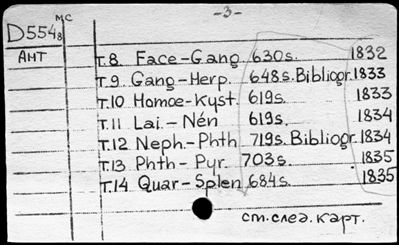 -3-
D554₈ МС
АНТ
т.8 Face-Gang 630s. 1832
т.9 Gang-Herp. 648s. Bibliogr. 1833
т.10 Homoe-Kyst. 619s. 1833
т.11 Lai.-Nén 619s. 1834
т.12 Neph.-Phth 719s. Bibliogr. 1834
т.13 Phth-Pyr. 703s. 1835
т.14 Quar-Splen 684s. 1835
ст.след.карт.